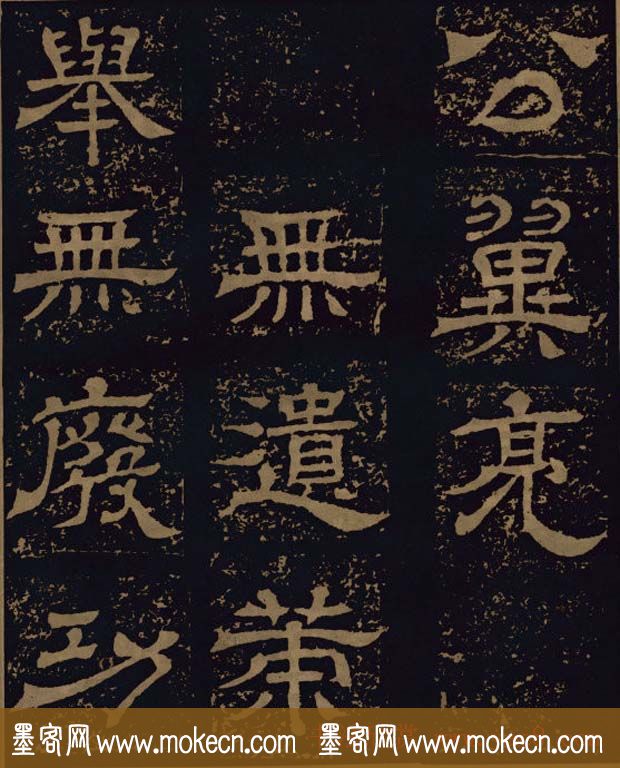 公翼亮
無遺策
舉無廢功
墨客网 www.mokecn.com 墨客网 www.mokecn.com